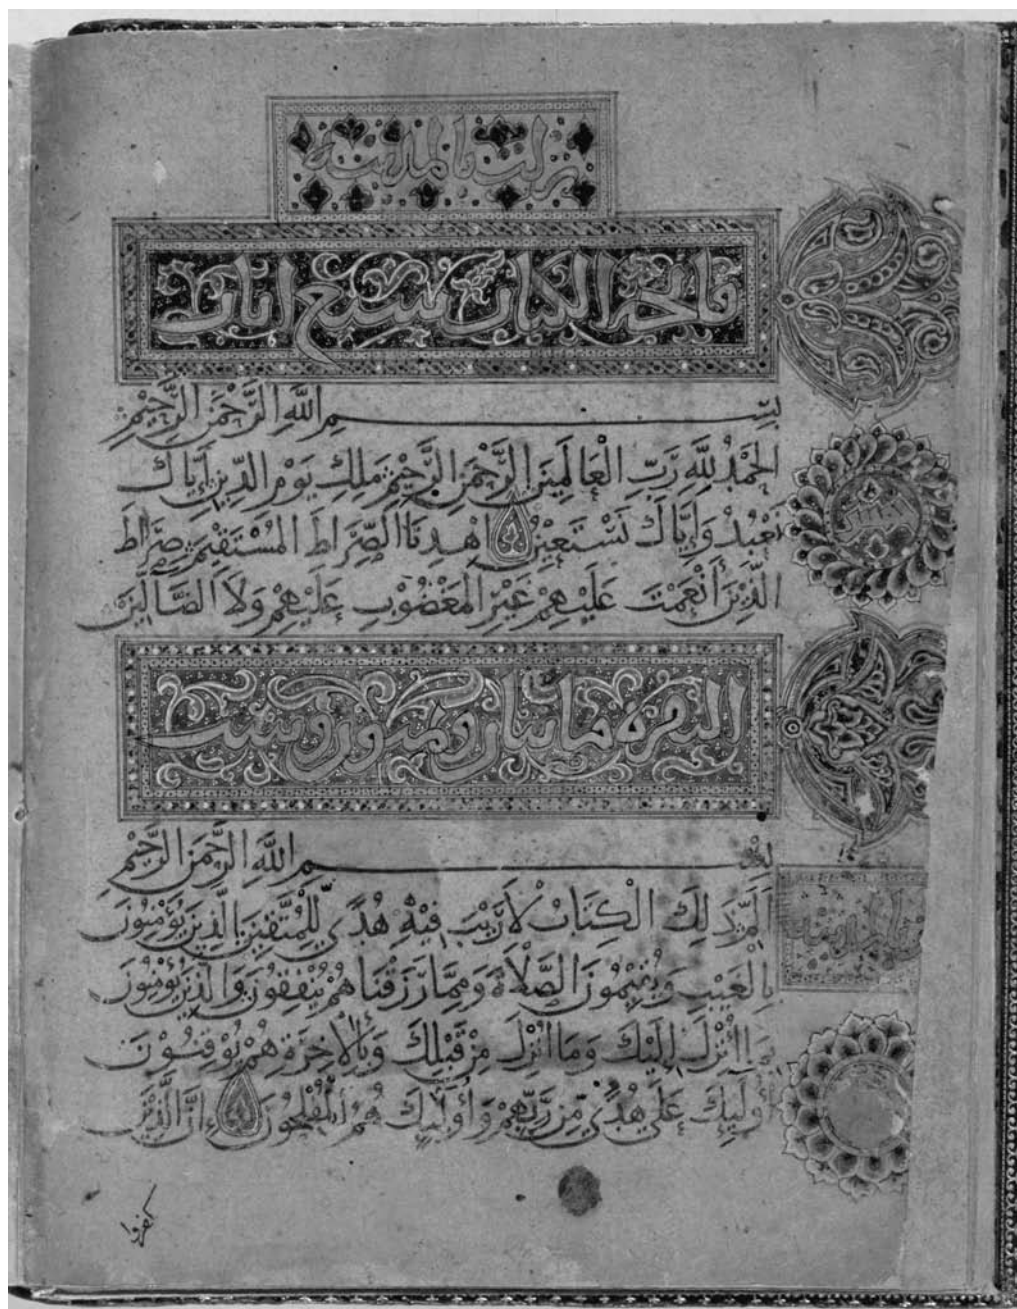 نزلت بالمدينة
فاتحة الكتاب سبع ايات
بِسْمِ اللَّهِ الرَّحْمَنِ الرَّحِيْمِ
الحَمْدُ لِلَّهِ رَبِّ الْعَالَمِينَ الرَّحْمَنِ الرَّحِيْمِ مَلِكِ يَوْمِ الدِّينِ إِيَّاكَ
نَعْبُدُ وَإِيَّاكَ نَسْتَعِيْنُ اهْدِنَا الصِّرَاطَ المُسْتَقِيْمَ صِرَاطَ
الَّذِيْنَ أَنْعَمْتَ عَلَيْهِمْ غَيْرِ المَغْضُوْبِ عَلَيْهِمْ وَلَا الضَّالِّيْنَ
البقرة مايتان وثمنون وست
بِسْمِ اللَّهِ الرَّحْمَنِ الرَّحِيْمِ
الَمّ ذَلِكَ الْكِتَابُ لَارَيْبَ فِيْهِ هُدًى لِّلْمُتَّقِيْنَ الَّذِيْنَ يُؤْمِنُونَ
بِالْغَيْبِ وَيُقِيْمُونَ الصَّلَاةَ وَمِمَّا رَزَقْنَاهُمْ يُنْفِقُونَ وَالَّذِيْنَ يُؤْمِنُونَ
بِمَا اُنْزِلَ إِلَيْكَ وَمَا اُنْزِلَ مِنْ قَبْلِكَ وَبِالْآخِرَةِ هُمْ يُوْقِنُوْنَ
أُولَئِكَ عَلَى هُدًى مِّنْ رَّبِّهِمْ وَأُولَئِكَ هُمُ الْمُفْلِحُونَ إِنَّ الَّذِيْنَ
كفروا